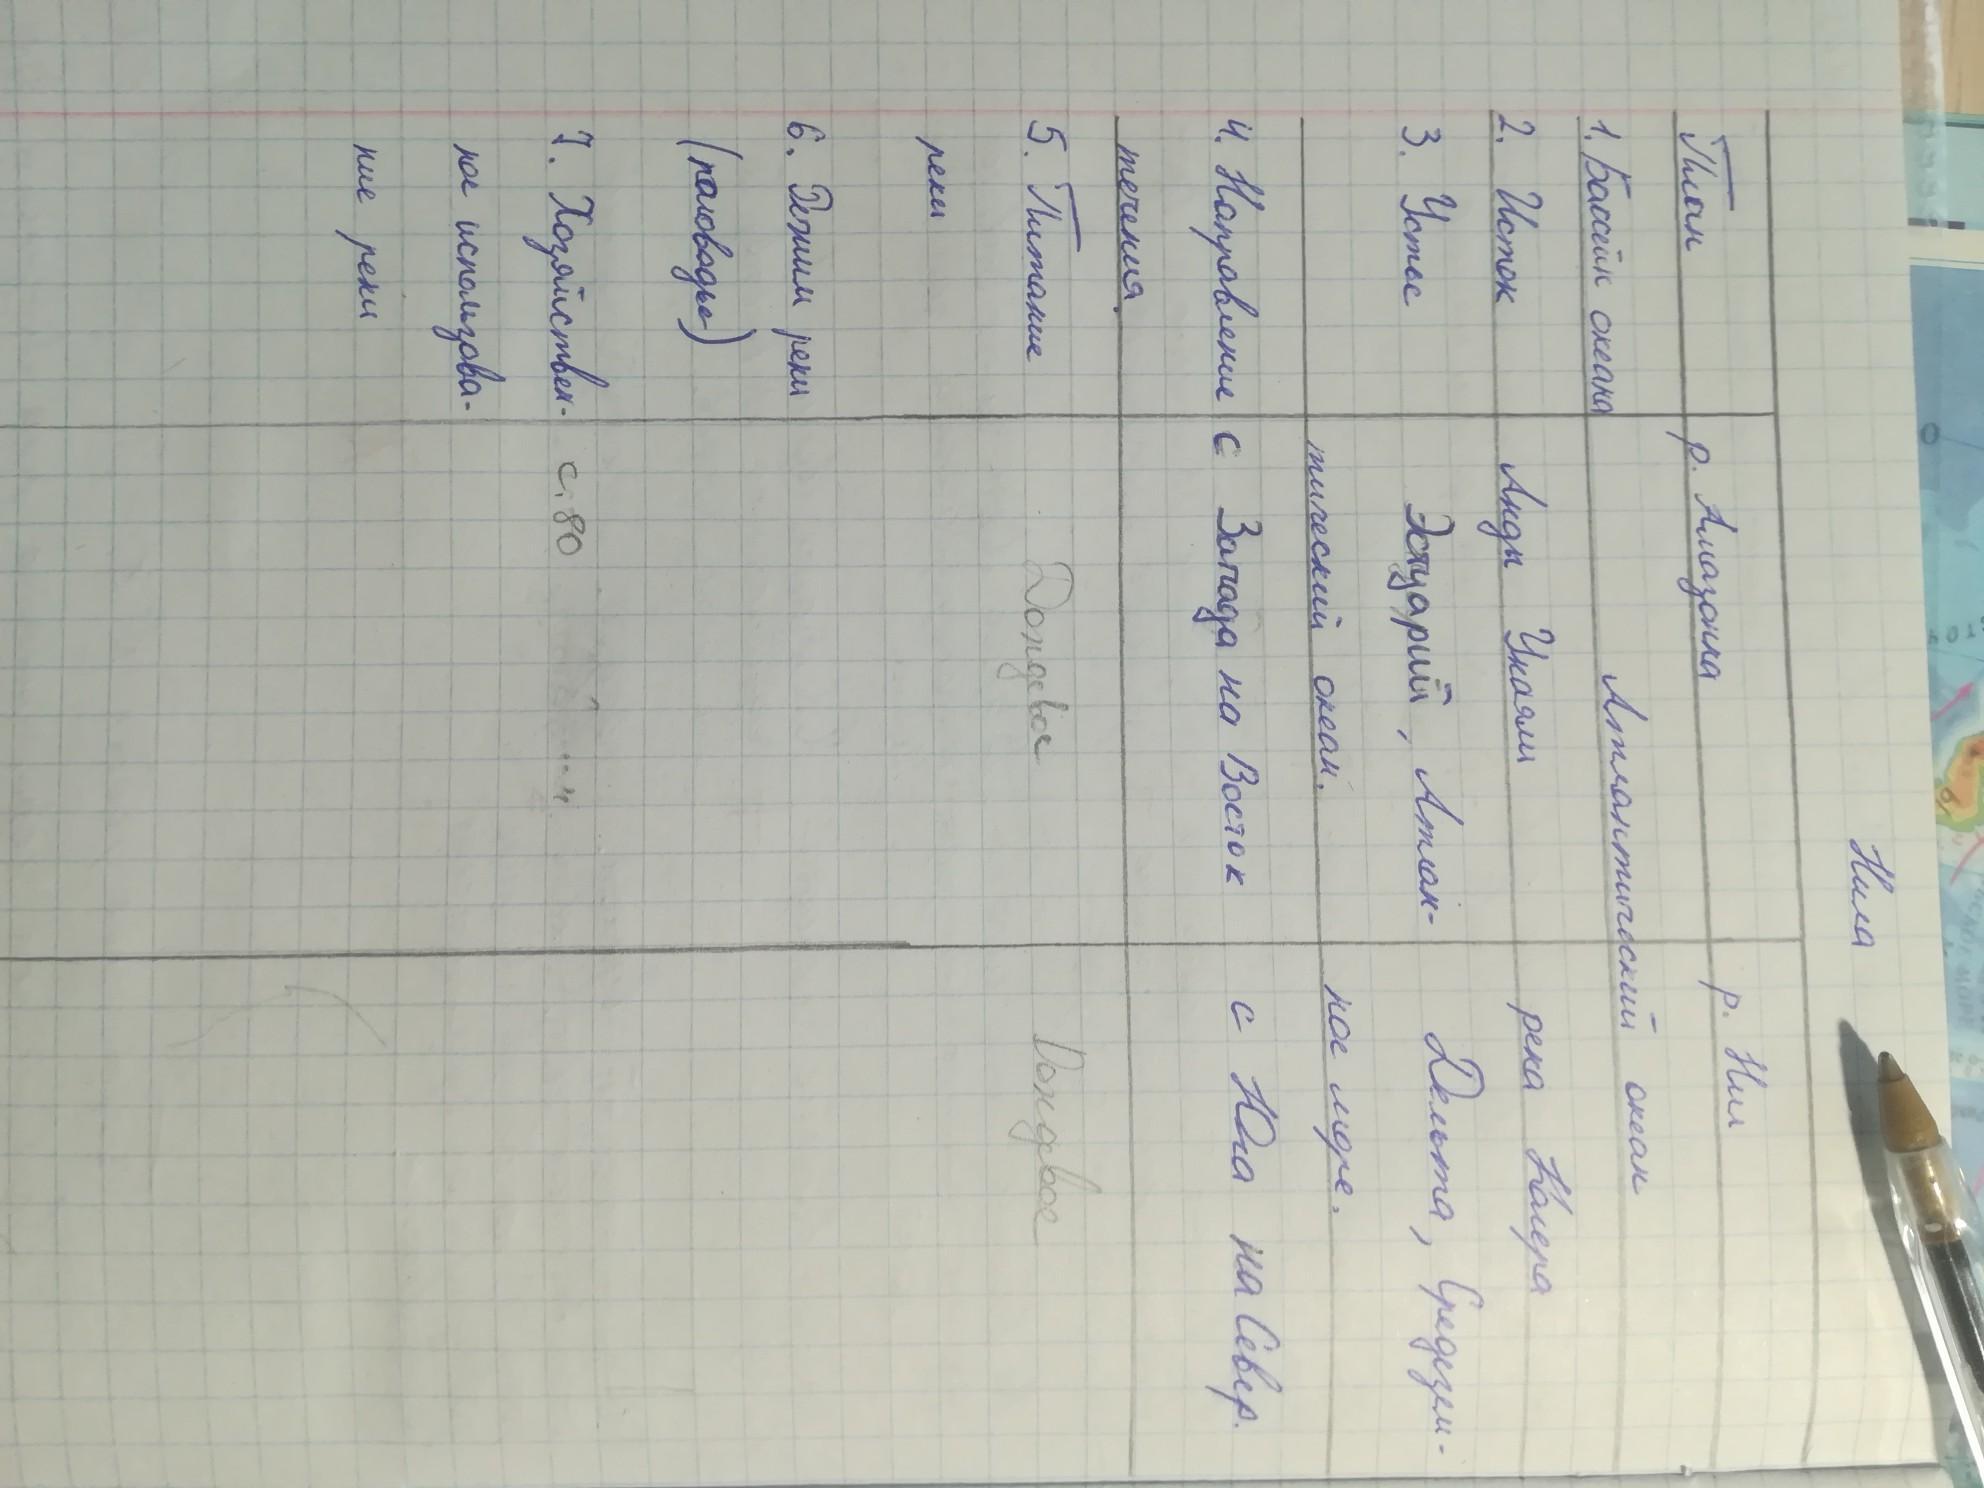 Нила
План р. Амазонка р. Нил
1. Басейн океана Атлантический океан
2. Исток Анды Укаяли река Кагера
3. Устье Эстуарий, Атлан- Дельта, Средизем-
тический океан. ное море.
4. Направление с Запада на Восток с Юга на Север.
течения.
5. Питание Дождевое Дождевое
реки
6. Режим реки
(половодье)
7. Хозяйствен- с. 80
ное использова-
ние реки